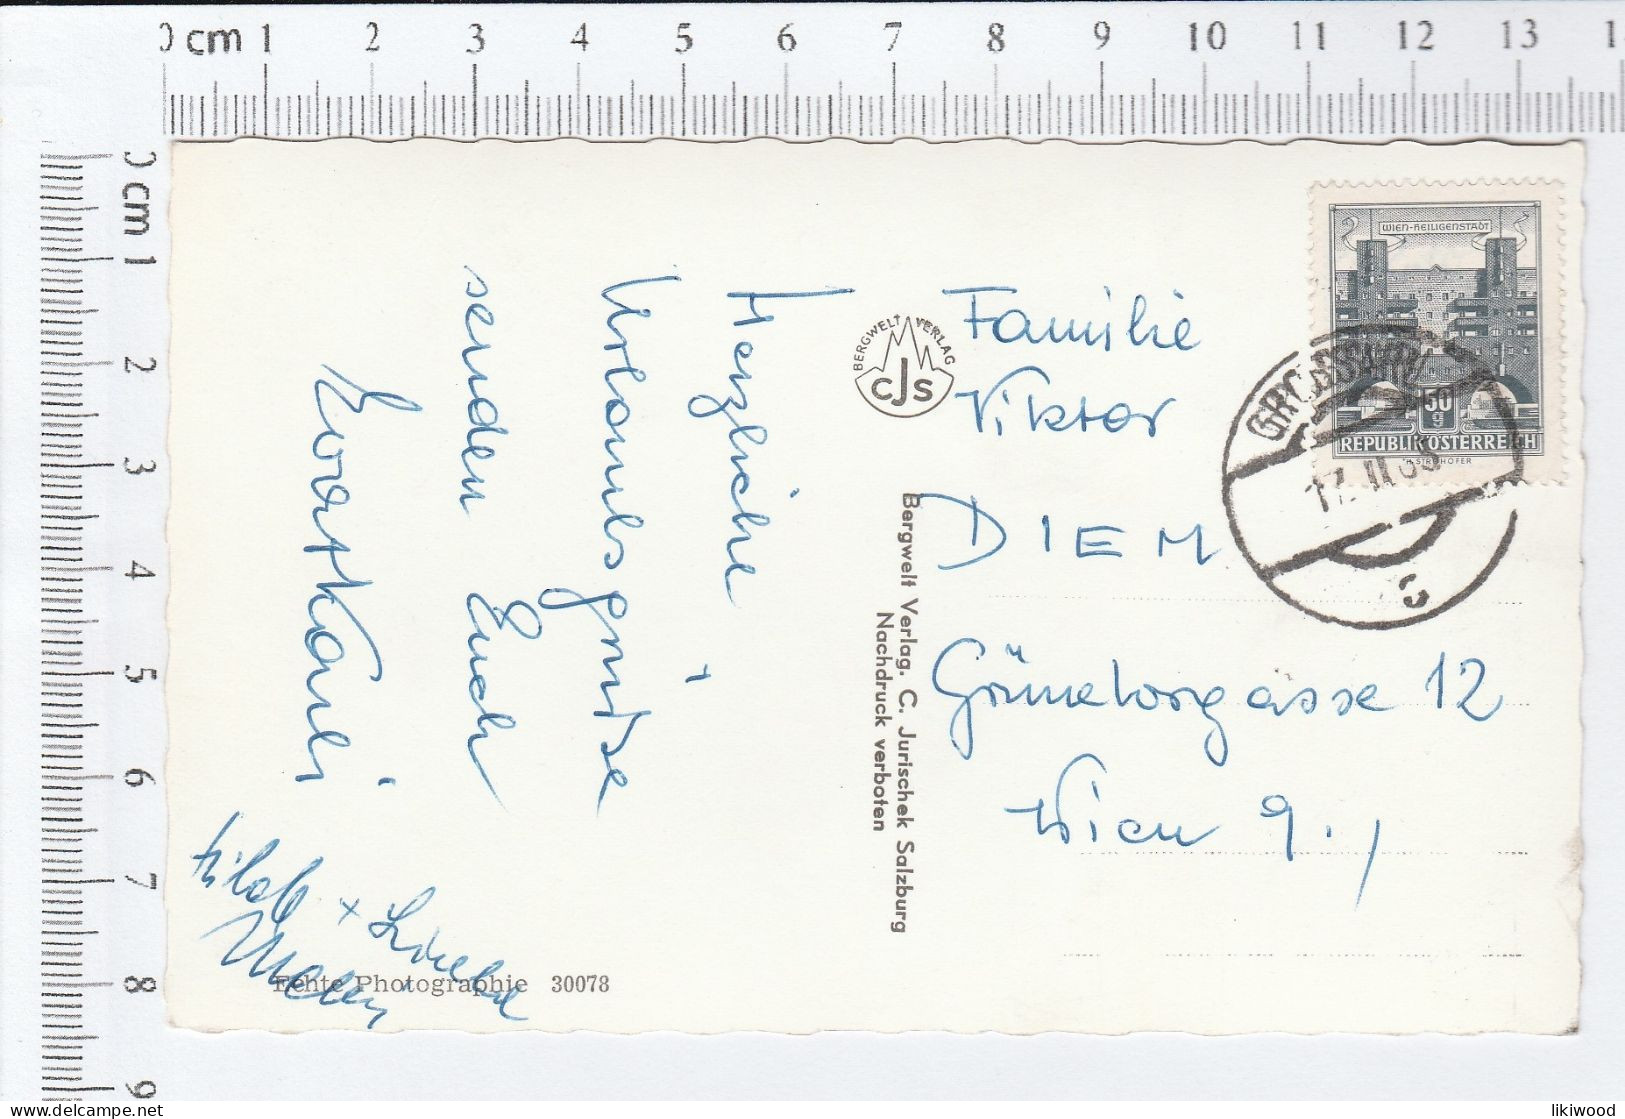 0 cm 1 2 3 4 5 6 7 8 9 10 11 12 13
0 cm 1 2 3 4 5 6 7 8 9
WIEN-HEILIGENSTADT
50
g
REPUBLIK ÖSTERREICH
17. II. 65
BERGWELT VERLAG
CJS
Herzliche
Urlaubsgrüße
senden Euch
Familie
Viktor
DIEM
Grünetorgasse 12
Wien 9.,
Bergwelt Verlag. C. Jurischek Salzburg
Nachdruck verboten
Echte Photographie 30078
likiwood